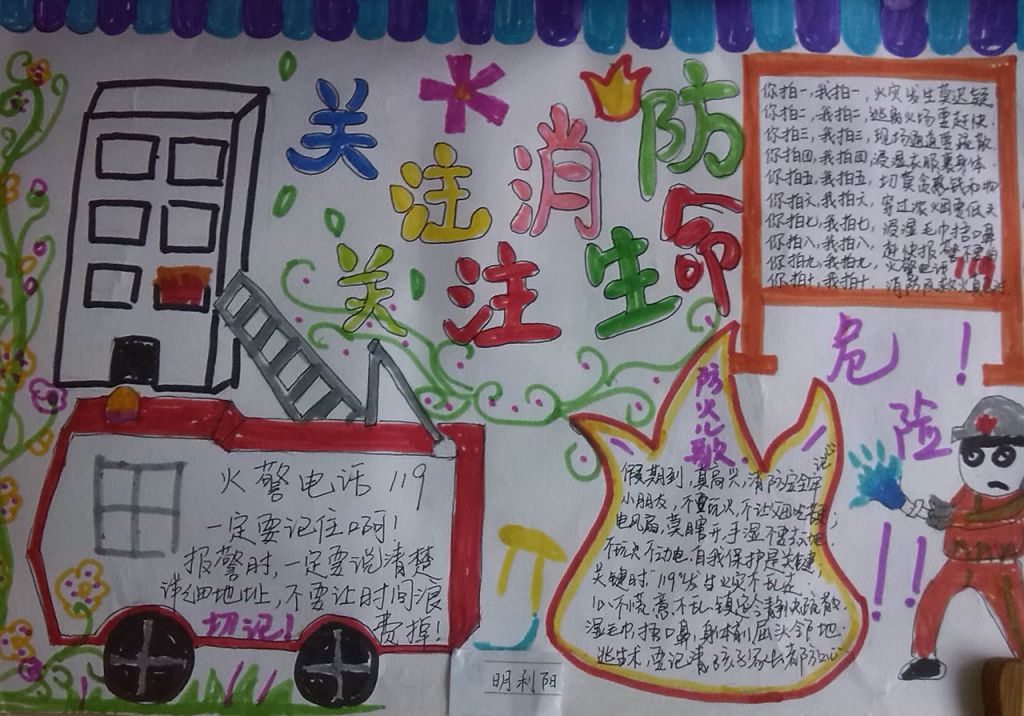 关注消防
关注生命
你拍一,我拍一,火灾发生莫迟疑
你拍二,我拍二,逃离火场要赶快
你拍三,我拍三,现场通道要疏散
你拍四,我拍四,浸湿衣服裹身体
你拍五,我拍五,切莫贪恋钱和物
你拍六,我拍六,穿过浓烟要低头
你拍七,我拍七,浸湿毛巾捂口鼻
你拍八,我拍八,赶快报警
你拍九,我拍九,火警电话119
你拍十,我拍十,消防
危险!
!!
火警电话119
一定要记住啊!
报警时,一定要说清楚
详细地址,不要让时间浪
费掉!
切记!
防火儿歌
假期到,真高兴,消防安全牢记心
小朋友,不要玩火,不让父母
电风扇,莫瞎开,手湿不要
不玩火不动电,自我保护是关键;
关键时"119"发生火灾不乱
心不慌意不乱,镇定冷静快疏散.
湿毛巾,捂口鼻,身体前屈头
要记清,孩子
明利阳